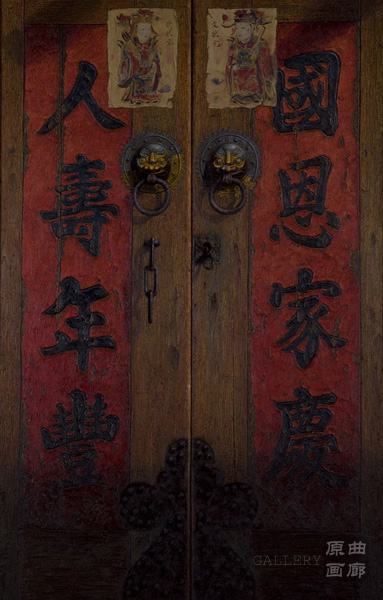 國恩家慶
人壽年豐
GALLERY
原曲
画廊